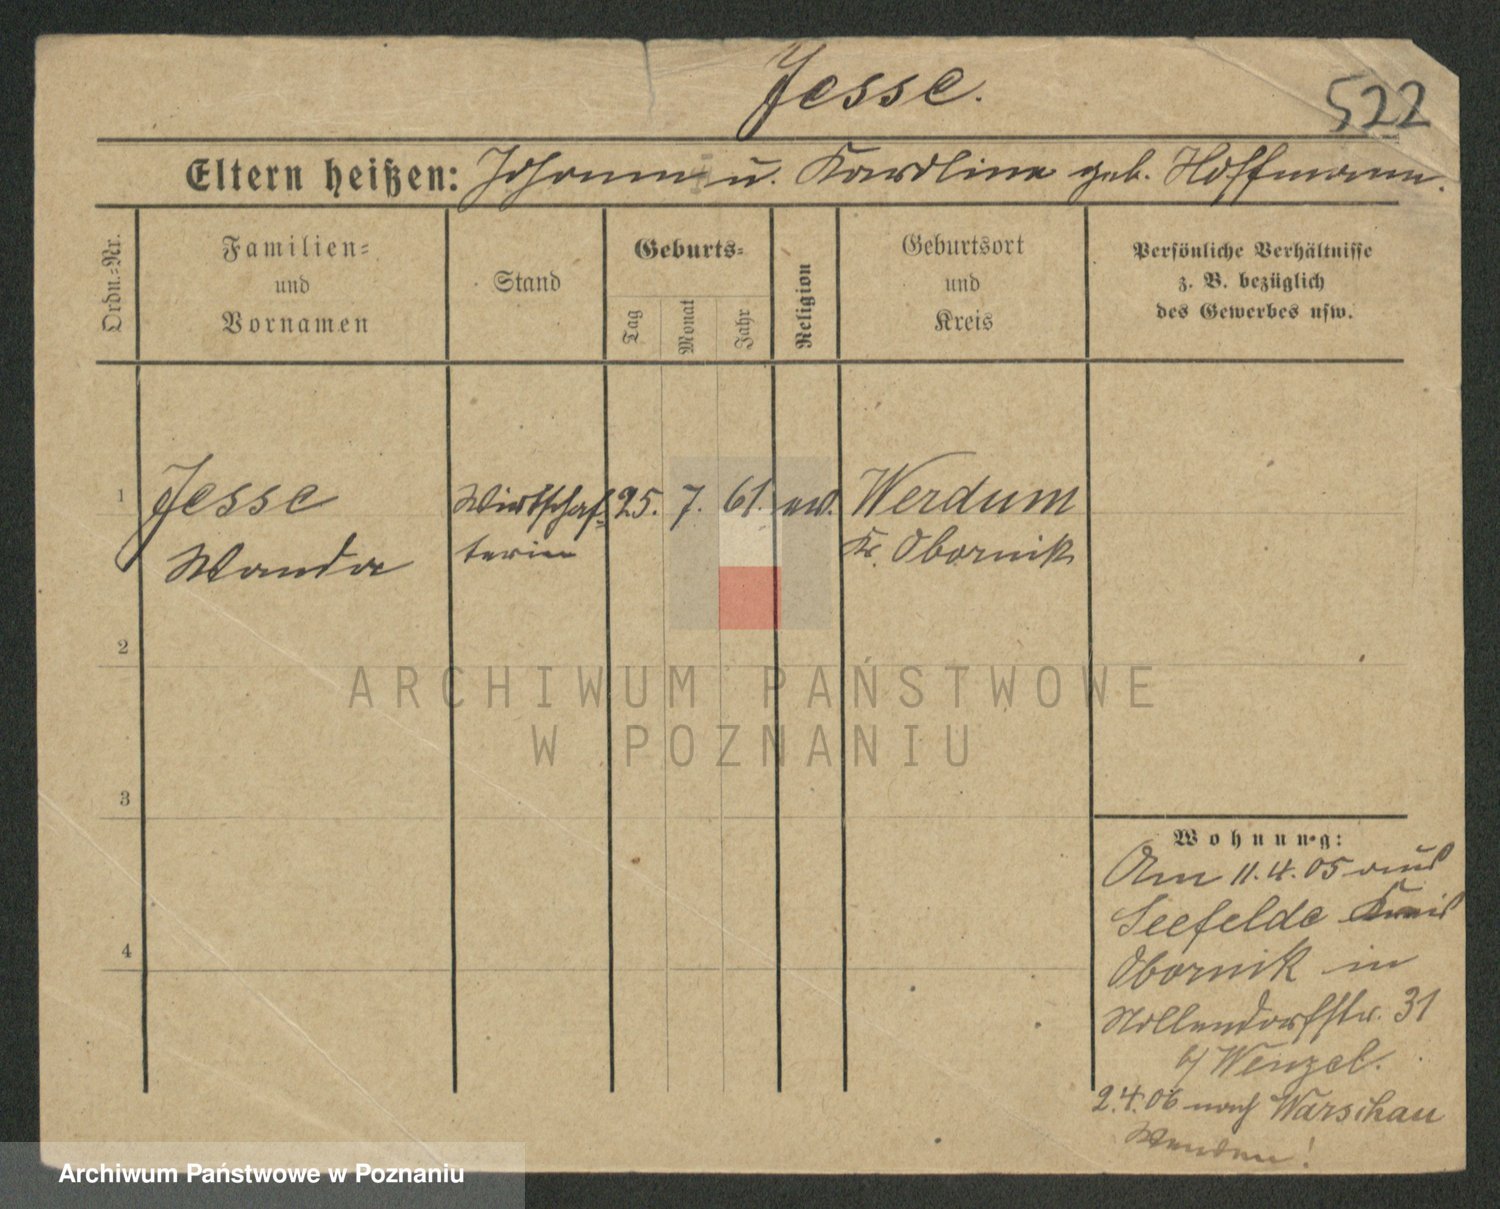 Jesse.
522
Eltern heißen: Johann u. Karoline geb. Hoffmann.
Ordn.=Nr.
Familien=
und
Vornamen
Stand
Geburts=
Tag
Monat
Jahr
Religion
Geburtsort
und
Kreis
Persönliche Verhältnisse
z. B. bezüglich
des Gewerbes usw.
1 Jesse Wirtschaf= 25. 7. 61. ev. Werdum
Wanda terin Kr. Obornik
2
3
4
Wohnung:
Am 11.4.05 aus
Seefelde Kreis
Obornik in
Nollendorfstr. 31
b/ Wenzel.
2.4.06 nach Warschau
ARCHIWUM PAŃSTWOWE
W POZNANIU
Archiwum Państwowe w Poznaniu